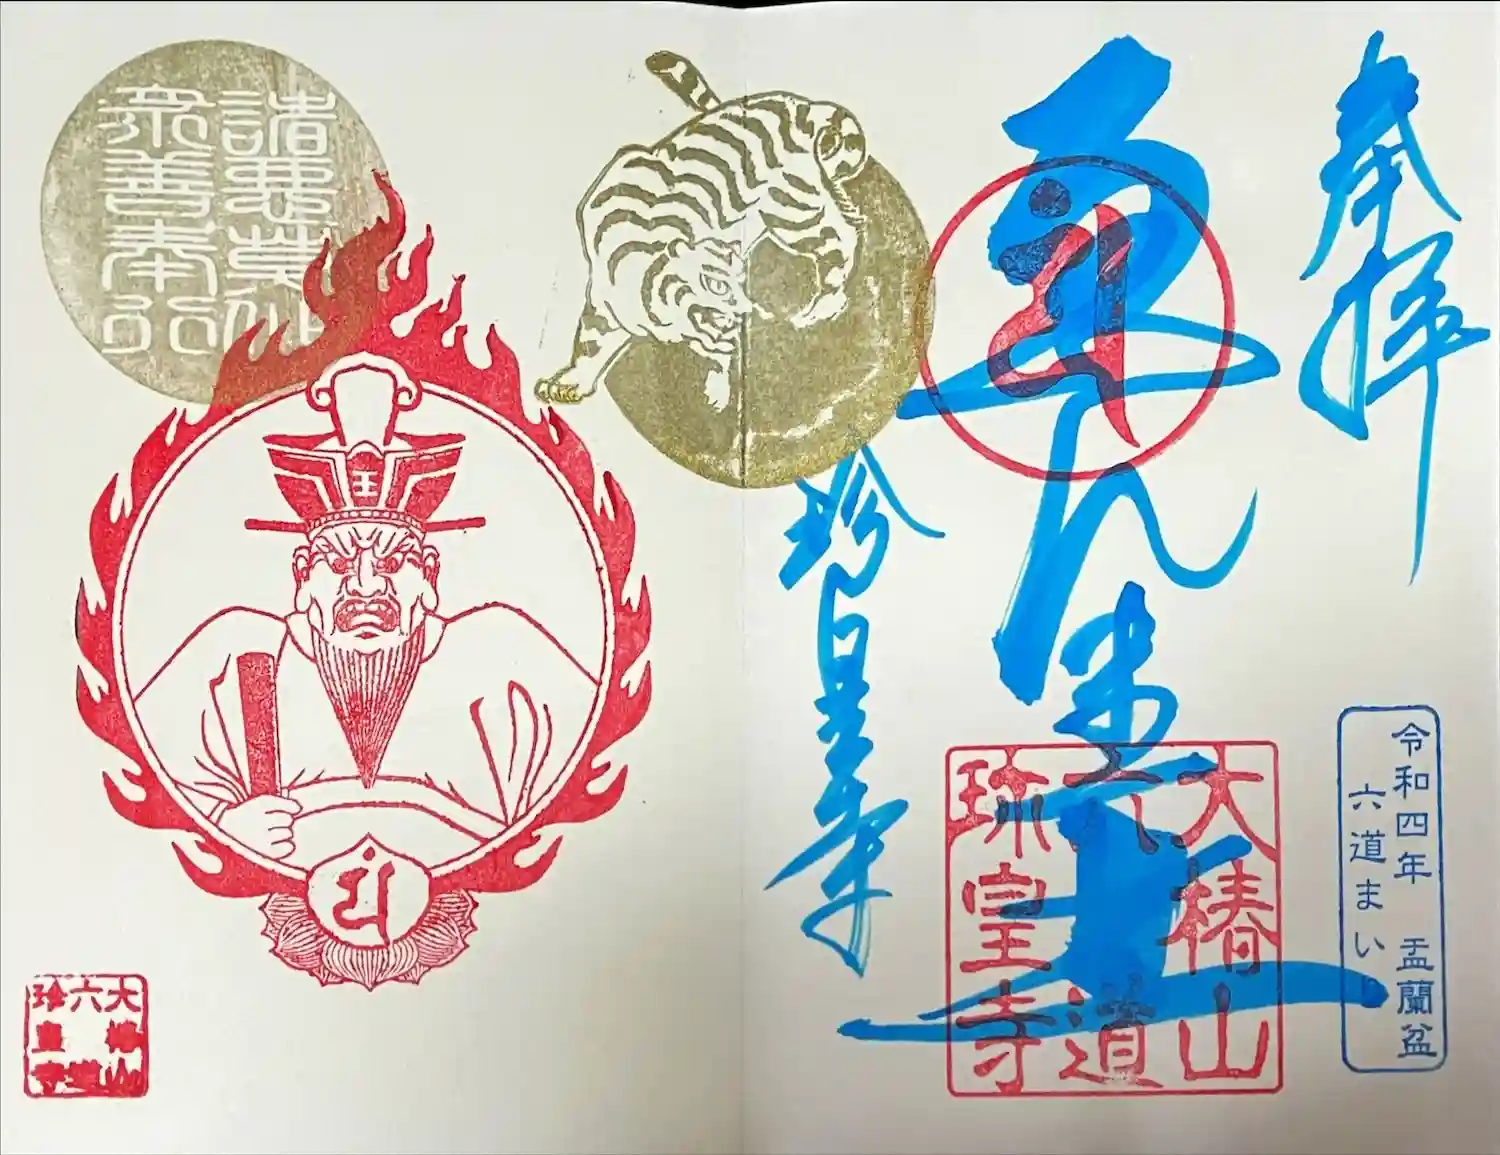 奉拝
令和四年　盂蘭盆
六道まいり
ゑんま王
大椿山
六道
珎皇寺
珍皇寺
諸惡莫作
衆善奉行
王
大椿山
六道
珍皇寺